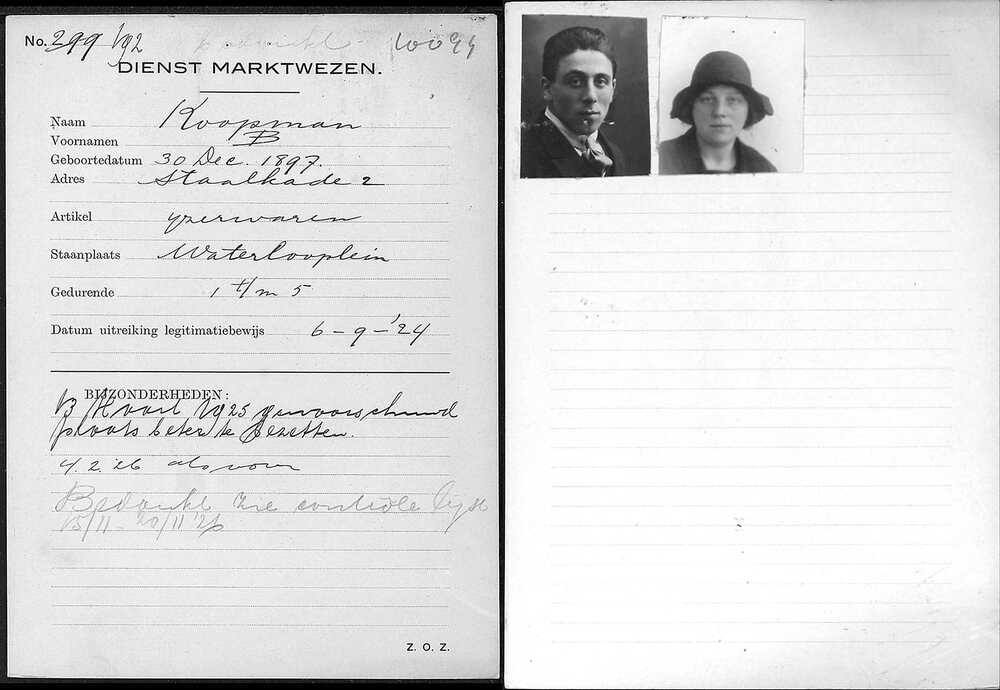 No. 299 1/92 bedankt 10094
DIENST MARKTWEZEN.
Naam Koopman
Voornamen B
Geboortedatum 30 Dec. 1897.
Adres Staalkade 2
Artikel yzerwaren
Staanplaats Waterlooplein
Gedurende 1 t/m 5
Datum uitreiking legitimatiebewijs 6-9-'24
BIJZONDERHEDEN:
13 Maart 1925 gewaarschuwd
plaats beter te bezetten.
4.2.26 als voren
Bedankt zie controle lijst
15/11 - 20/11 '26
Z. O. Z.